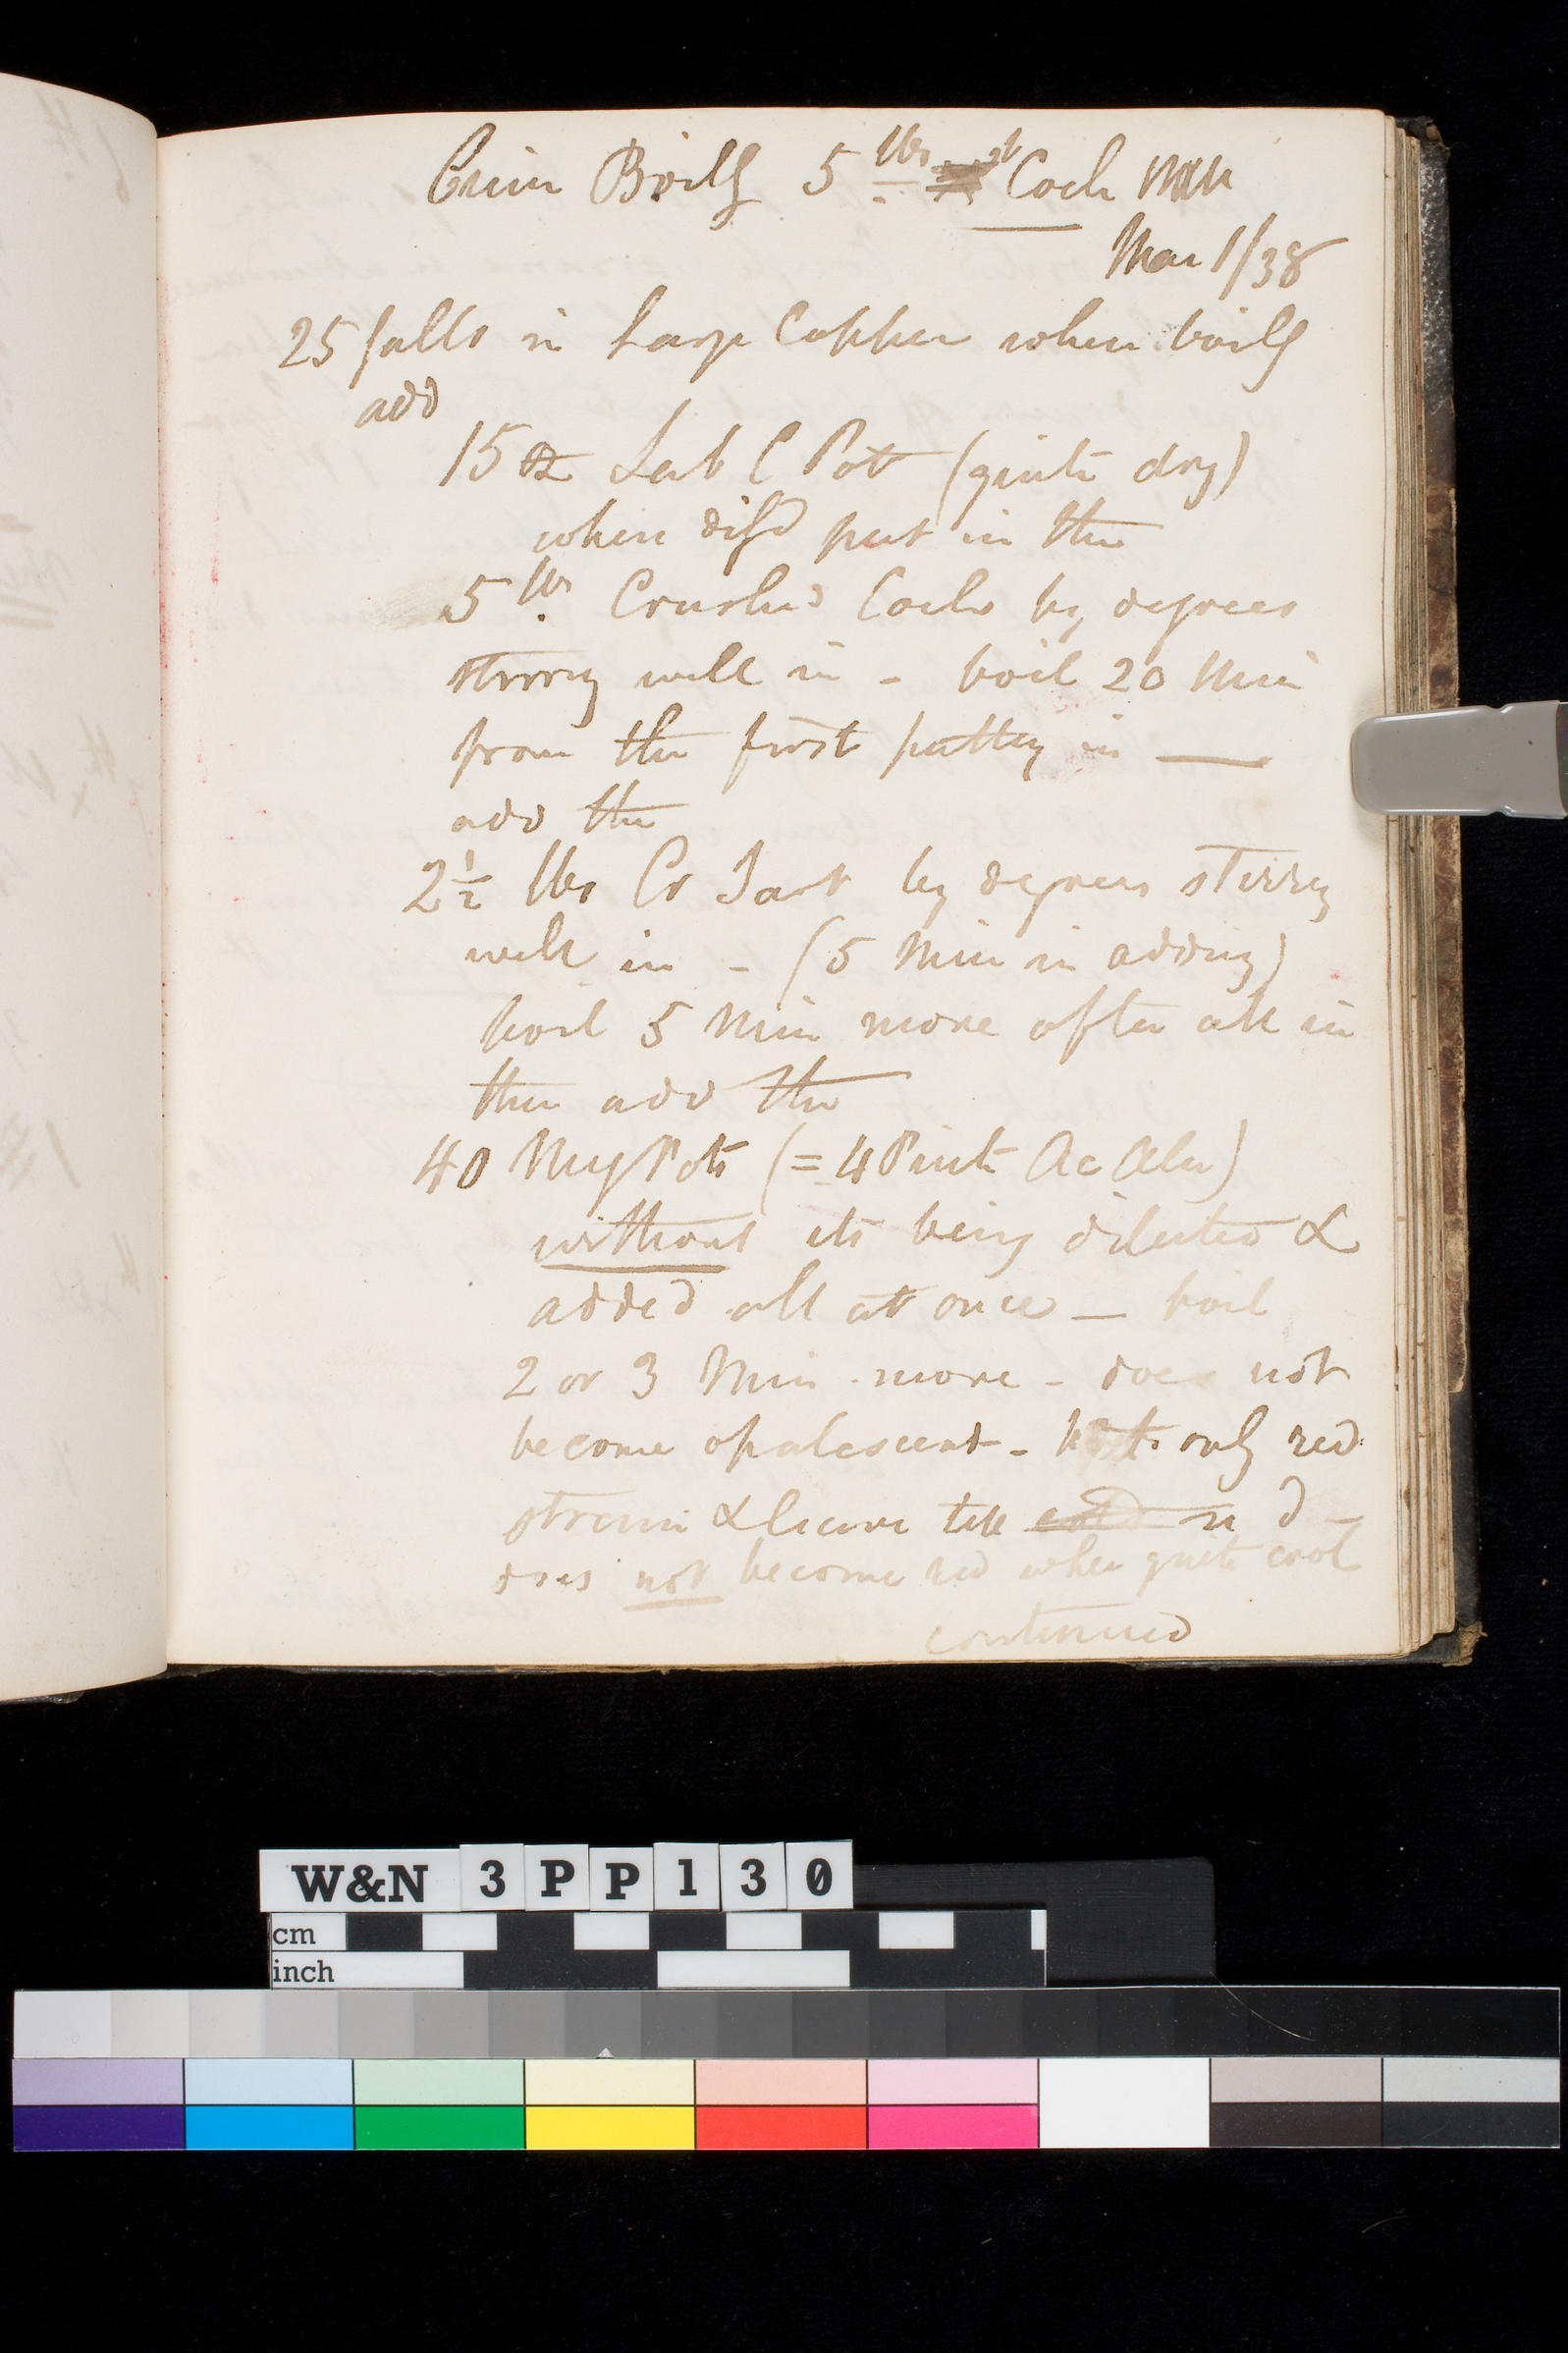 Crim Boilg 5 lbs Coch
Mar 1/38
25 galls in Large Copper when boilg
add
15 oz Sub C Pot (quite dry)
when disd put in the
5 lbs Crushed Coch by degrees
stirrg well in - boil 20 Min
from the first puttg in —
add the
2 1/2 lbs Cr Tart by degrees stirrg
well in - (5 Min in adding)
boil 5 Min more after all in
then add the
40 (= 4 Pints Ac Alu)
without its being diluted &
added all at once — boil
2 or 3 Min more - does not
become opalescent - only red
strain & leave till cold
does not become red when quite cool
continued
W&N 3PP130
cm
inch